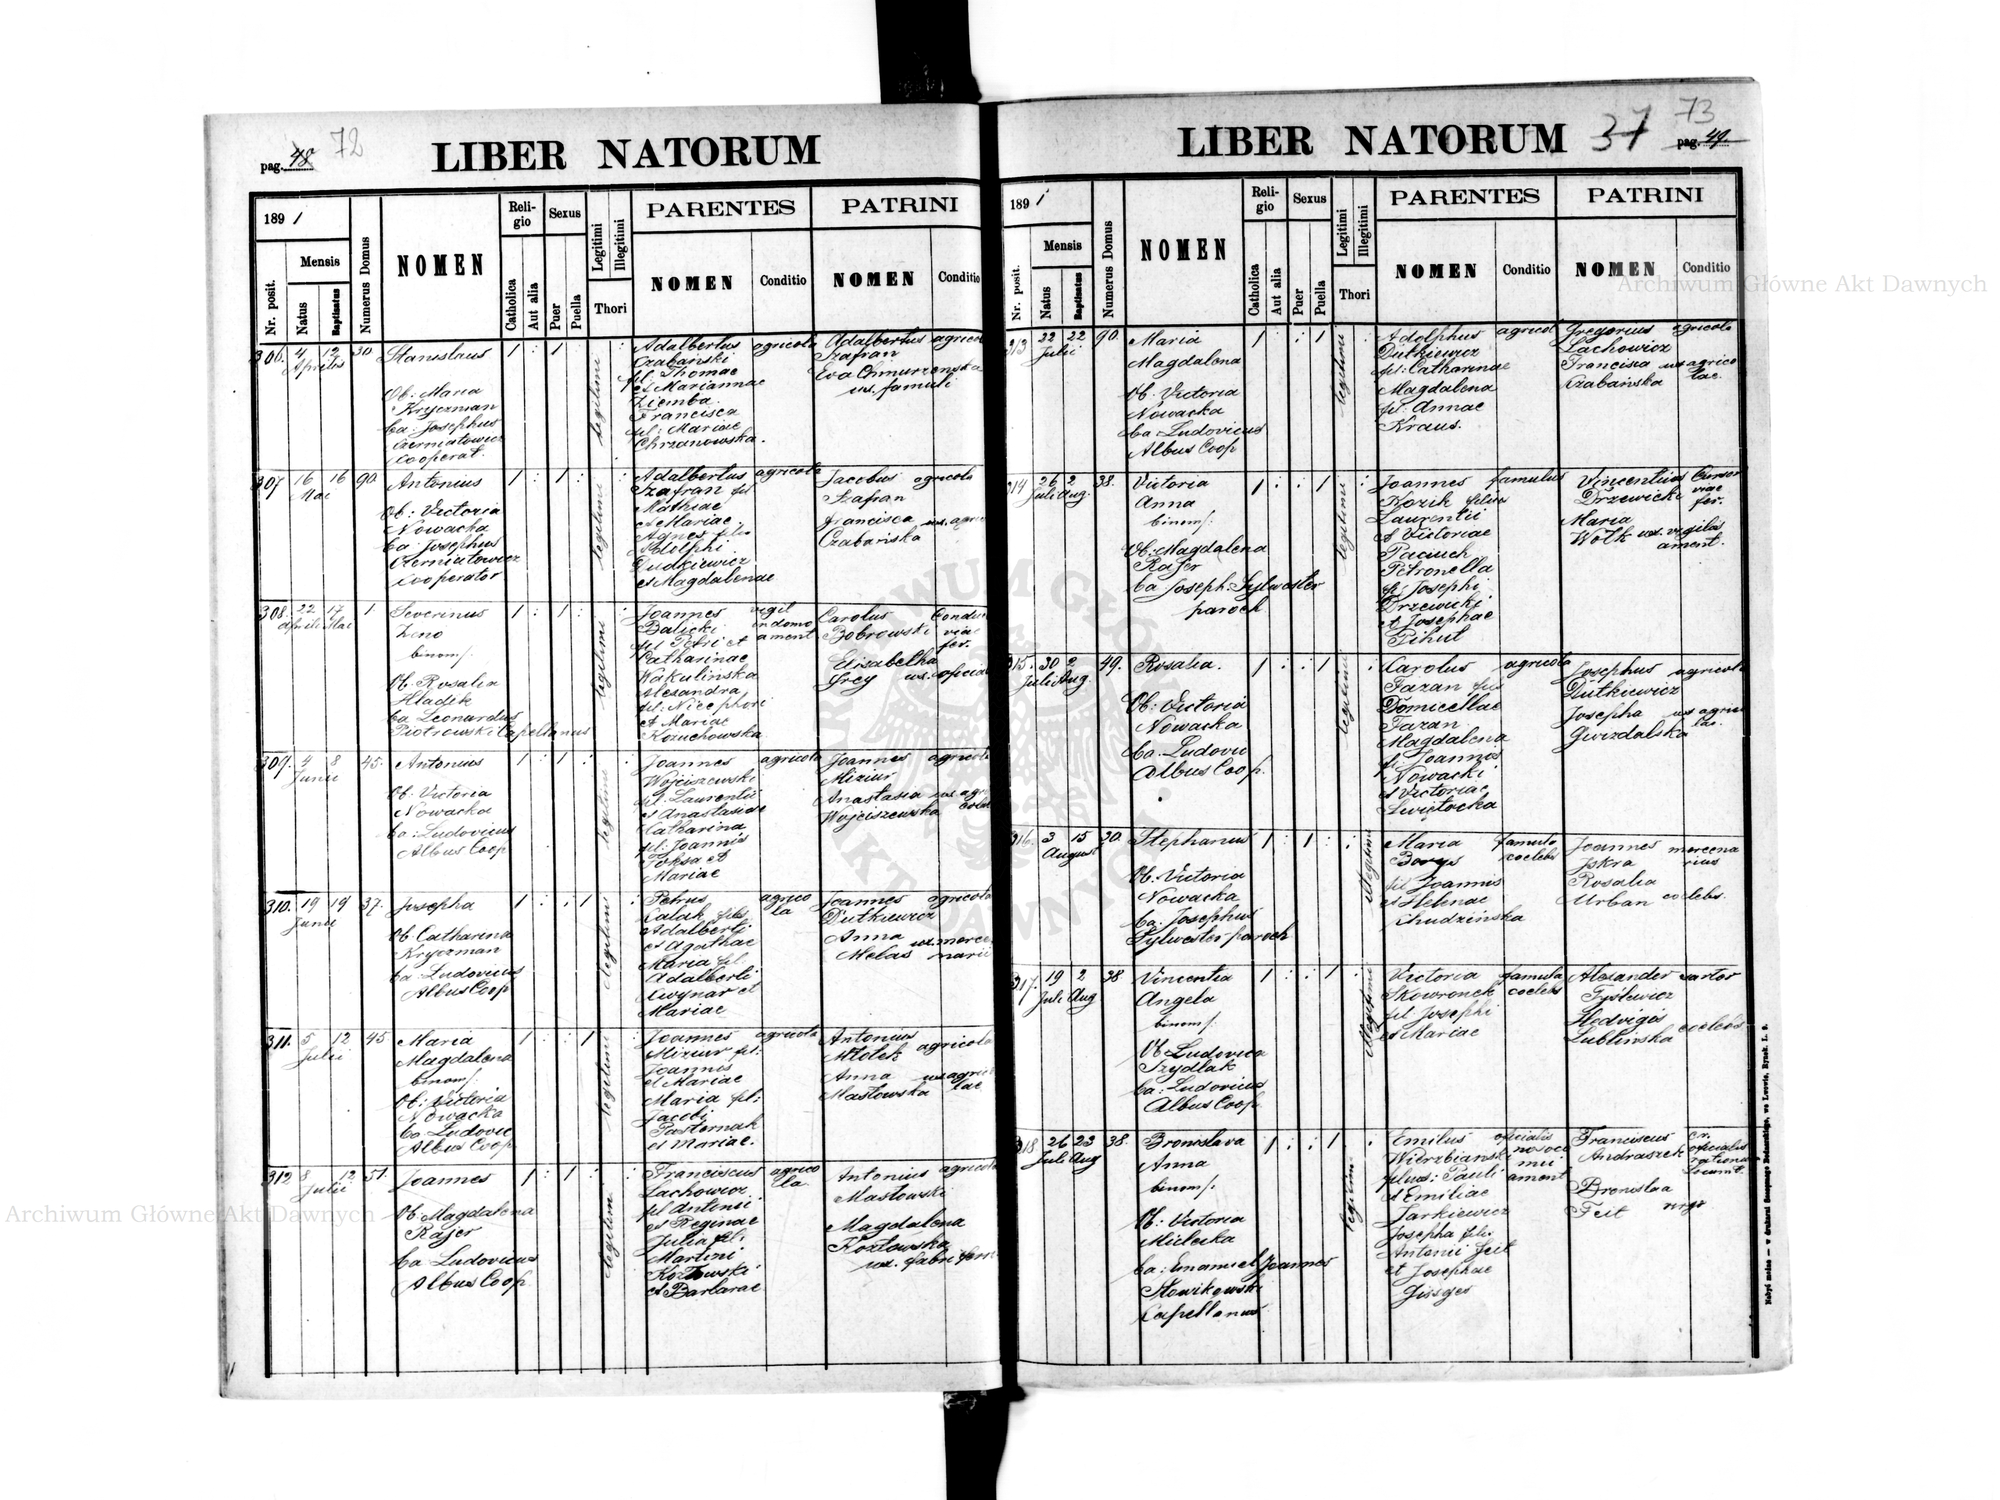 pag. 48 72
LIBER NATORUM
1891
Nr. posit.
Mensis
Natus
Baptisatus
Numerus Domus
NOMEN
Reli-
gio
Catholica
Aut alia
Sexus
Puer
Puella
Legitimi
Illegitimi
Thori
PARENTES
NOMEN
Conditio
PATRINI
NOMEN
Conditio
306. 4 12 30.
Aprilis
Stanislaus
Ob: Maria
Kryczman
ba: Josephus
Czerniatowicz
Cooperat.
1 : 1 :
legitimi
Adalbertus agricola
Czabański
fil Thomae
et Mariannae
Ziemba.
Francisca
fil: Mariae
Chrzanowska.
Adalbertus agricola
Szafran
Eva Chmurzenska
ux. famuli
307 16 16 90.
Mai
Antonius
Ob: Victoria
Nowacka
ba Josephus
Czerniatowicz
Cooperator
1 : 1 :
legitimi
Adalbertus agricola
Szafran fil
Mathiae
et Mariae.
Agnes filia
Adolphi
Dudkiewicz
et Magdalenae
Jacobus agricola
Szafran
Francisca ux. agric
Czabańska
308. 22 17 1.
Aprili Mai
Severinus
Zeno
binom/.
Ob Rosalia
Hladik
ba Leonardus
Piotrowski Capellanus
1 : 1 :
legitimi
Joannes vigil
Balicki in domo
fil Petri et ament
Catharinae
Wakulinska
Alexandra
fil: Nicephori
et Mariae
Kozuchowska
Carolus Conduc
Bobrowski viae
fer.
Elisabetha
Grey ux. oficial
309. 4 8 45.
Junii
Antonius
Ob: Victoria
Nowacka
ba: Ludovicus
Albus Coop
1 : 1 :
legitimi
Joannes agricola
Wojciszewski
fil: Laurentii
et Anastasiae
Catharina
fil: Joannis
Toksa et
Mariae
Joannes agricola
Miziur
Anastasia ux. agri
Wojciszewska colae
310. 19 19 37.
Junii
Josepha
Ob Catharina
Kryczman
ba: Ludovicus
Albus Coop
1 : : 1
legitimi
Petrus agrico
Calak filii la
Adalberti
et Agathae
Maria fil
Adalberti
Cwynar et
Mariae
Joannes agricola
Dutkiewicz
Anna ux. merce
Melas narii
311. 5 12 45.
Julii
Maria
Magdalena
binom/.
Ob: Victoria
Nowacka
ba Ludovic
Albus Coop
1 : : 1
legitimi
Joannes agricola
Miziur fil:
Joannis
et Mariae
Maria fil:
Jacobi
Pasternak
et Mariae.
Antonius
Młotek agricola
Anna ux. agrico
Masłowska lae
312 8 12 51.
Julii
Joannes
Ob: Magdalena
Rajer
ba Ludovicus
Albus Coop
1 : 1 :
legitim
Franciscus agrico
Lachowicz la
fil Antonii
et Reginae
Julia fil:
Martini
Kozłowski
et Barbarae
Antonius agricola
Masłowski
Magdalena
Kozłowska
ux. fabri ferr
LIBER NATORUM 37 73
pag. 49.
1891
Nr. posit.
Mensis
Natus
Baptisatus
Numerus Domus
NOMEN
Reli-
gio
Catholica
Aut alia
Sexus
Puer
Puella
Legitimi
Illegitimi
Thori
PARENTES
NOMEN
Conditio
PATRINI
NOMEN
Conditio
313 22 22 90.
Julii
Maria
Magdalena
Ob. Victoria
Nowacka
ba Ludovicus
Albus Coop
1 : : 1
legitimi
Adolphus agricol
Dutkiewicz
fil: Catharinae
Magdalena
fil: Annae
Kraus.
Gregorius agricola
Lachowicz
Francisca ux agrico
Czabańska lae.
314 26 2 38.
Juli Aug.
Victoria
Anna
binom/.
Ob: Magdalena
Rajer
ba Joseph. Sylwester
paroch
1 : : 1
legitimi
Joannes famulus
Kozik filius
Laurentii
et Victoriae
Paciuch
Petronella
fil Josephi
Drzewicki
et Josephae
Pihut
Vincentius Cursor
Drzewicki viae
fer.
Maria
Wołk ux. vigilis
ament.
315. 30 2 49.
Juli Aug.
Rosalia.
Ob: Victoria
Nowacka
ba: Ludovic
Albus Coop.
1 : : 1
legitimi
Carolus agricola
Fazan filii
Domicellae
Fazan
Magdalena
fil Joannis
Nowacki
et Victoriae
Swiętocka
Josephus agricola
Dutkiewicz
Josepha ux agrico
Gwizdalska lae.
316. 3 15 30.
August
Stephanus
Ob. Victoria
Nowacka
ba: Josephus
Sylwester paroch
1 : 1 :
illegitimi
Maria famula
Borys coelebs
fil Joannis
et Helenae
Chudzińska
Joannes mercena
Iskra rius
Rosalia
Urban coelebs.
317. 19 2 38
Juli Aug
Vincentia
Angela
binom/.
Ob Ludovica
Szydlak
ba: Ludovicus
Albus Coop
1 : : 1
illegitimi
Victoria famula
Skowronek coelebs
fil Josephi
et Mariae
Alexander sartor
Tyslewicz
Hedvigis
Lublinska coelebs
318 26 23 38.
Juli Aug
Bronislava
Anna
binom/.
Ob: Victoria
Mielecka
ba: Emanuel Joannes
Słowikowski
Capellanus
1 : : 1
legitim.
Emilus oficialis
Wierzbianski nosoco
filius: Pauli mii
et Emiliae ament
Jarkiewicz
Josepha filia
Antonii Feit
et Josephae
Gissges
Franciscus cr.
Andraszek oficialis
rationa
Bronislaa
Feit virgo
Nabyć można — w drukarni Szczęsnego Bednarskiego, we Lwowie, Rynek. L. 9.
Archiwum Główne Akt Dawnych
Archiwum Główne Akt Dawnych
ARCHIWUM GŁÓWNE AKT DAWNYCH